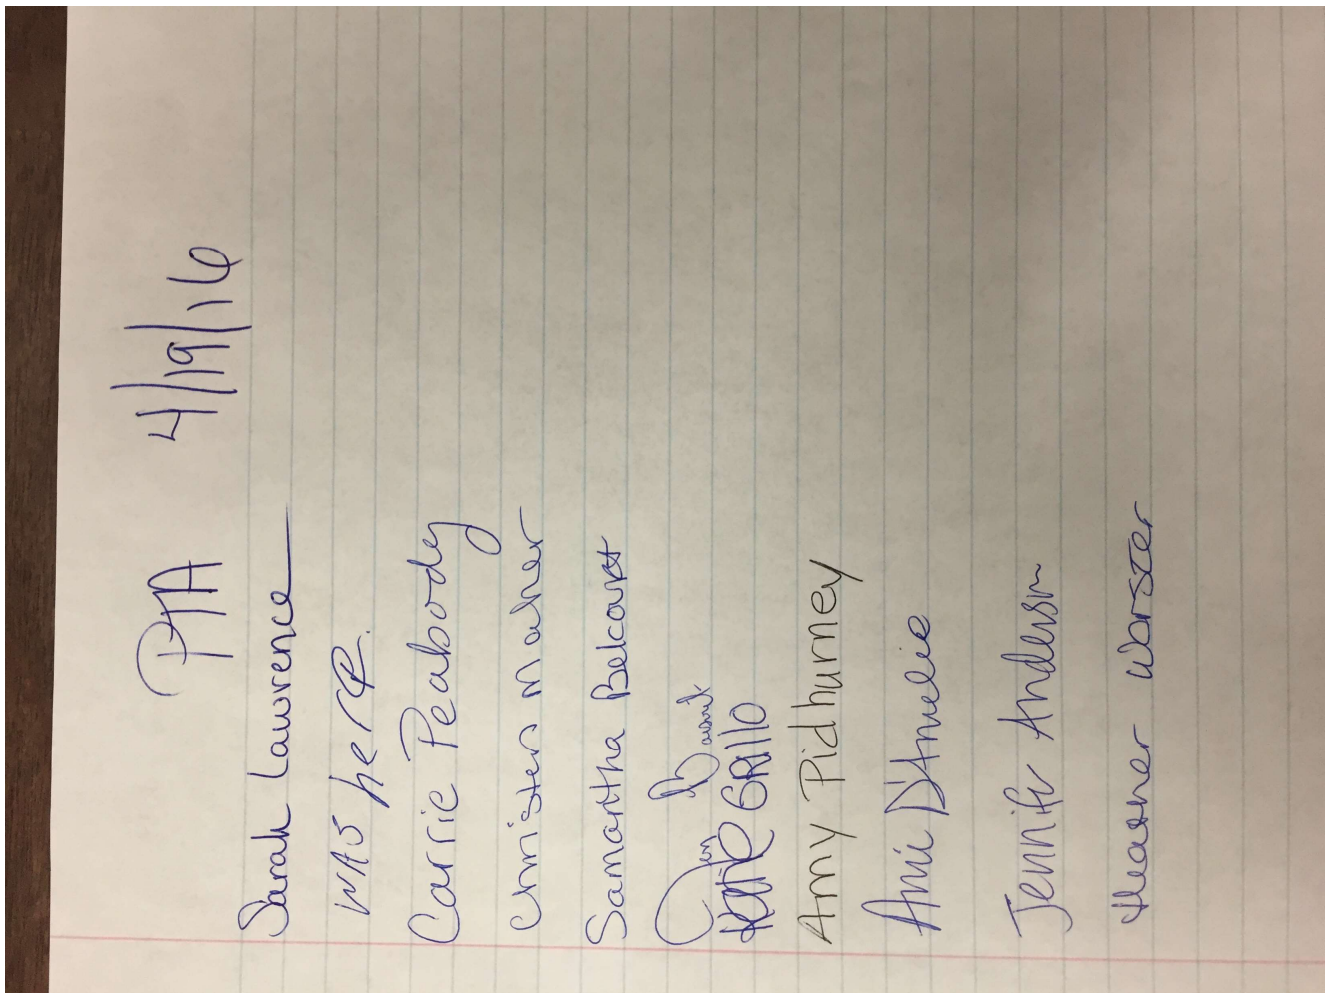 PTA 4/19/16
Sarah Lawrence
WAS here.
Carrie Peabody
Christen Maher
Samantha Belcourt
Jen
Katie GRIllO
Amy Pidhurney
Ami D'Amelie
Jennifer Anderson
Heather Worster